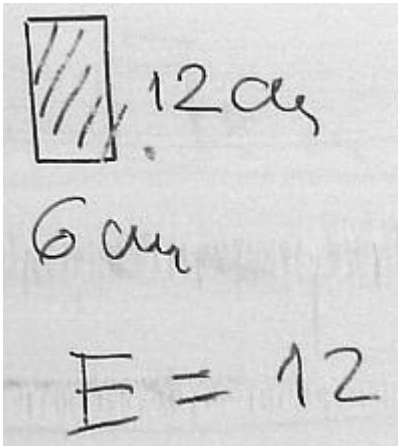 12cm
6cm
E = 12